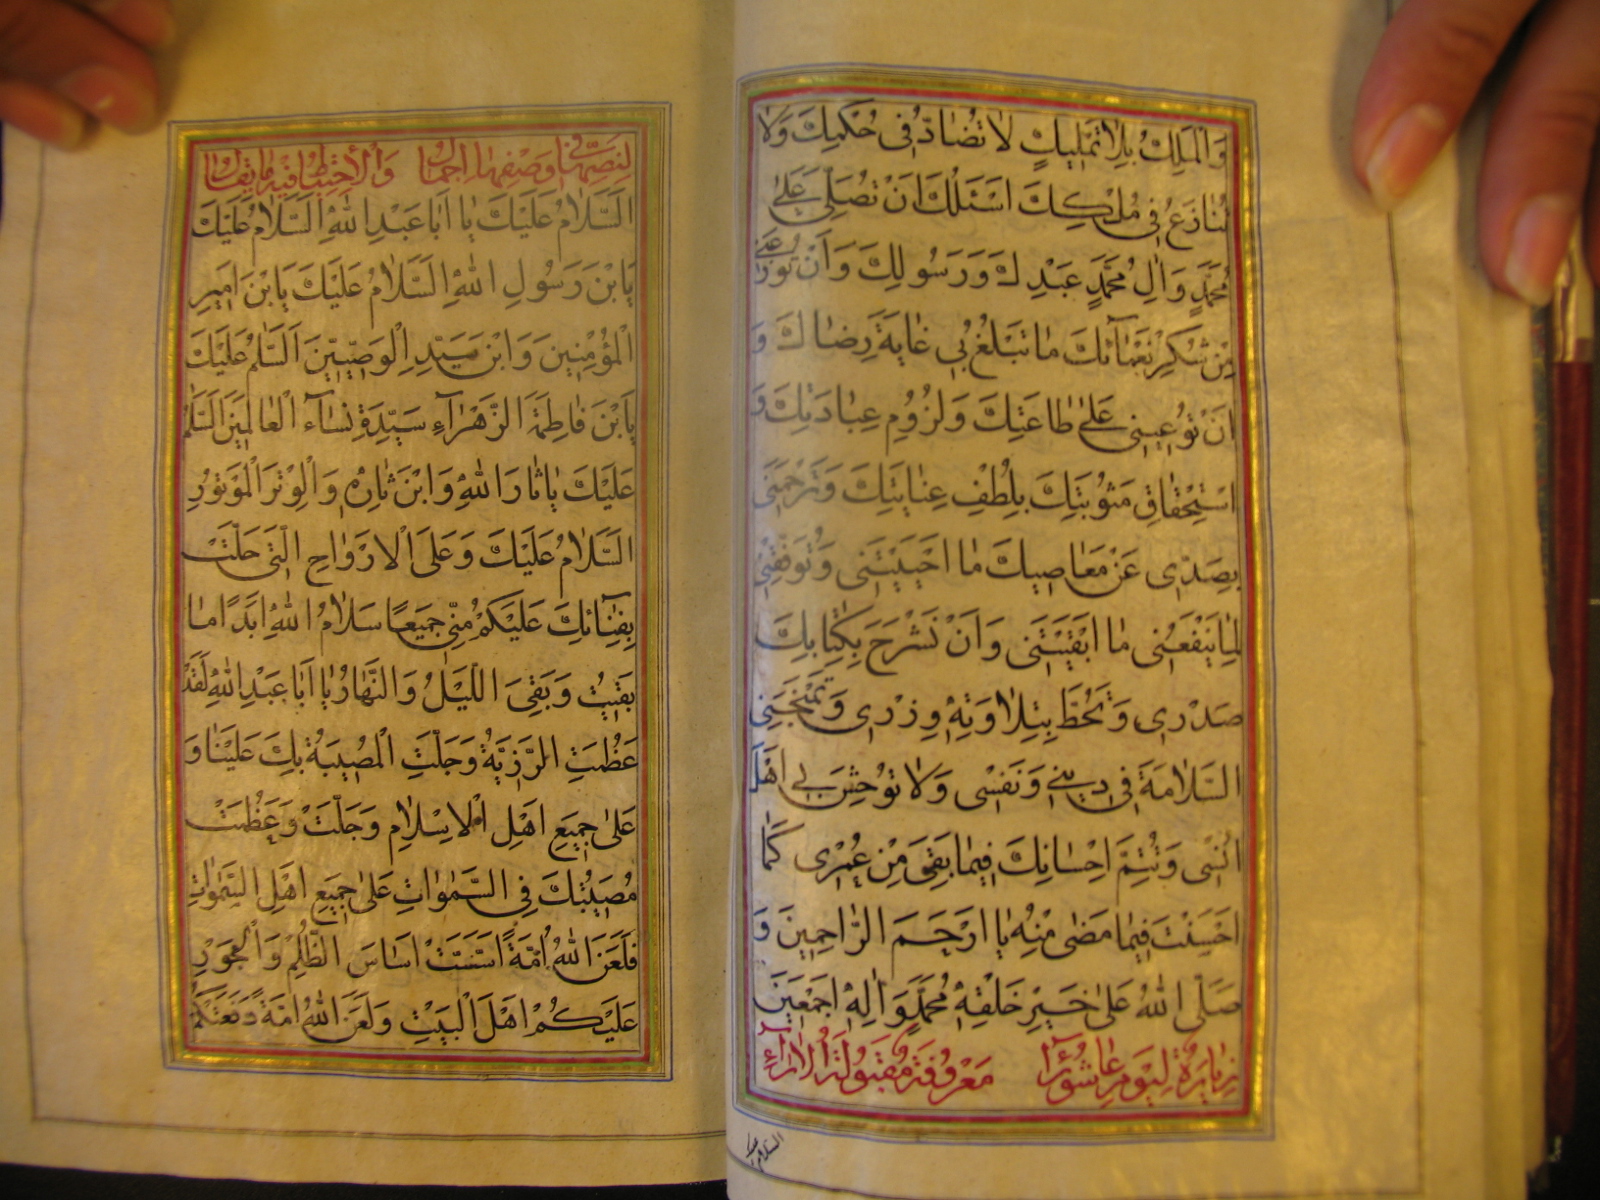 وَالْمَلِكُ بِلَا تَمْلِيكٍ لَا تُضَادُّ فِي حُكْمِكَ وَلَا
تُنَازَعُ فِي مُلْكِكَ اَسْئَلُكَ اَنْ تُصَلِّيَ عَلىٰ
مُحَمَّدٍ وَاٰلِ مُحَمَّدٍ عَبْدِكَ وَرَسُولِكَ وَاَنْ تُوزِعَنِي
مِنْ شُكْرِ نَعْمَآئِكَ مَا تَبْلُغُ بِي غَايَةَ رِضَاكَ وَ
اَنْ تُعِينَنِي عَلىٰ طَاعَتِكَ وَلُزُومِ عِبَادَتِكَ وَ
اسْتِحْقَاقِ مَثُوبَتِكَ بِلُطْفِ عِنَايَتِكَ وَتَرْحَمَنِي
بِصَدِّي عَنْ مَعَاصِيكَ مَا اَحْيَيْتَنِي وَتُوَفِّقَنِي
لِمَا يَنْفَعُنِي مَا اَبْقَيْتَنِي وَاَنْ تَشْرَحَ بِكِتَابِكَ
صَدْرِي وَتَحُطَّ بِتِلَاوَتِهِ وِزْرِي وَتَمْنَحَنِي
السَّلَامَةَ فِي دِينِي وَنَفْسِي وَلَا تُوحِشَ بِي اَهْلَ
اُنْسِي وَتُتِمَّ اِحْسَانَكَ فِيمَا بَقِيَ مِنْ عُمْرِي كَمَا
اَحْسَنْتَ فِيمَا مَضىٰ مِنْهُ يَا اَرْحَمَ الرَّاحِمِينَ وَ
صَلَّى اللهُ عَلىٰ خَيْرِ خَلْقِهِ مُحَمَّدٍ وَاٰلِهِ اَجْمَعِينَ
زِيَارَةُ لِيَوْمِ عَاشُورَآءَ مَعْرُوفَةٌ مَقْبُولَةُ
السلام
السَّلَامُ عَلَيْكَ يَا اَبَا عَبْدِ اللهِ السَّلَامُ عَلَيْكَ
يَابْنَ رَسُولِ اللهِ السَّلَامُ عَلَيْكَ يَابْنَ اَمِيرِ
الْمُؤْمِنِينَ وَابْنَ سَيِّدِ الْوَصِيِّينَ اَلسَّلٰمُ عَلَيْكَ
يَابْنَ فَاطِمَةَ الزَّهْرَآءِ سَيِّدَةِ نِسَآءِ الْعَالَمِينَ السَّلٰمُ
عَلَيْكَ يَا ثَارَ اللهِ وَابْنَ ثَارِهِ وَالْوِتْرَ الْمَوْتُورَ
السَّلَامُ عَلَيْكَ وَعَلَى الْاَرْوَاحِ الَّتِي حَلَّتْ
بِفِنَآئِكَ عَلَيْكُمْ مِنِّي جَمِيعًا سَلَامُ اللهِ اَبَدًا مَا
بَقِيتُ وَبَقِيَ اللَّيْلُ وَالنَّهَارُ يَا اَبَا عَبْدِ اللهِ لَقَدْ
عَظُمَتِ الرَّزِيَّةُ وَجَلَّتِ الْمُصِيبَةُ بِكَ عَلَيْنَا وَ
عَلىٰ جَمِيعِ اَهْلِ الْاِسْلَامِ وَجَلَّتْ وَعَظُمَتْ
مُصِيبَتُكَ فِي السَّمٰوَاتِ عَلىٰ جَمِيعِ اَهْلِ السَّمٰوَاتِ
فَلَعَنَ اللهُ اُمَّةً اَسَّسَتْ اَسَاسَ الظُّلْمِ وَالْجَوْرِ
عَلَيْكُمْ اَهْلَ الْبَيْتِ وَلَعَنَ اللهُ اُمَّةً دَفَعَتْكُمْ